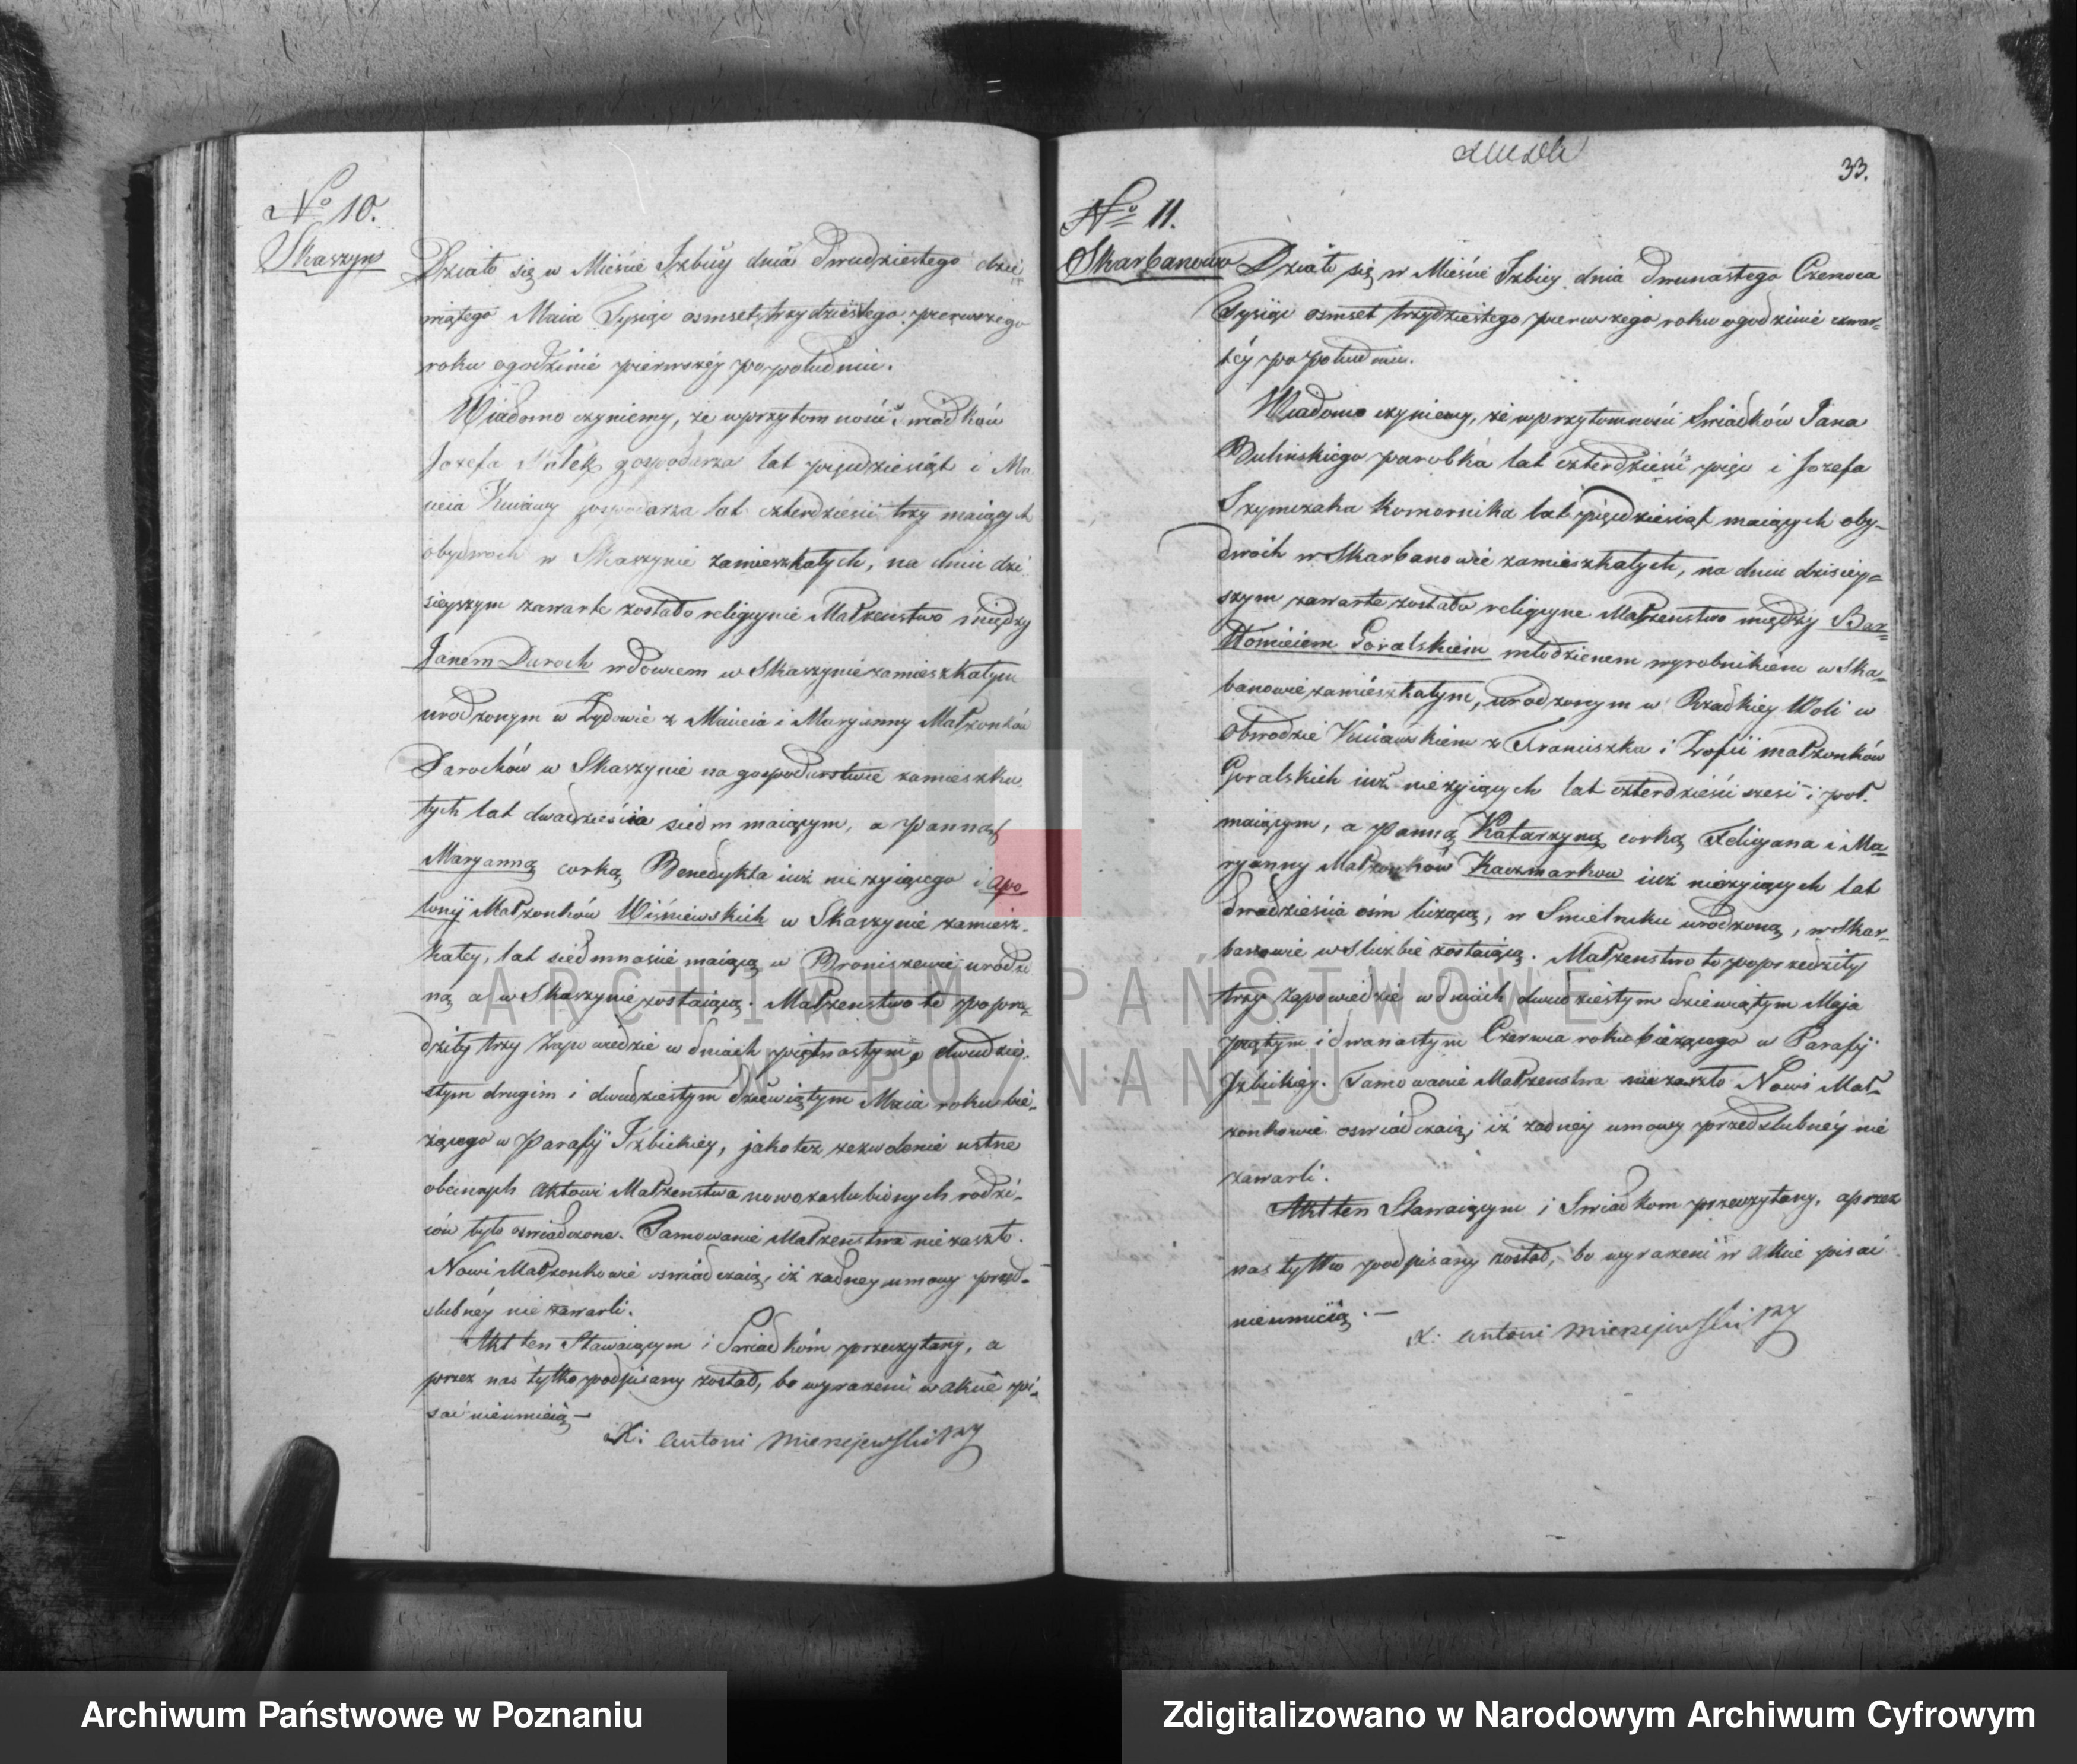 No 10.
Skaszyn
Działo się w Mieście Izbicy dnia Dwudziestego dzie
wiątego Maia Tysiąc osmset trzydziestego pierwszego
roku o godzinie pierwszéy popołudniu.
Wiadomo czyniemy, że w przytomności świadków
Jozefa gospodarza lat pięćdziesiąt i Ma
cieia Kuiawy gospodarza lat czterdzieści trzy maiących
obydwoch w Skaszynie zamieszkałych, na dniu dzi
sieyszym zawarte zostało religiynie Małżenstwo między
Janem Daroch wdowcem w Skaszynie zamieszkałym
urodzonym w Żydowie z Macieia i Maryanny Małżonków
Darochów w Skaszynie na gospodarstwie zamieszka
łych lat dwadzieścia siedm maiącym, a panną
Maryanną corką Benedykta iuż nie żyiącego i Apo
lonij Małżonków Wiśniewskich w Skaszynie zamiesz-
kałey, lat siedmnaście maiącą w Broniszewie urodzo
ną a w Skaszynie zostaiącą. Małżenstwo to poprze-
dziły trzy Zapowiedzie w dniach piętnastym, dwudzie-
stym drugim i dwudziestym dziewiątym Maia roku bie-
żącego w Parafij Izbickiey, jako też zezwolenie ustne
obecnych Aktowi Małżenstwa nowozaslubionych rodzi-
ców było oswiadczone. Tamowanie Małżenstwa nie zaszło.
Nowi Małżonkowie oswiadczaią, iż żadney umowy przed-
slubnéy nie zawarli.
Akt ten Stawaiącym i Swiadkóm przeczytany, a
przez nas tylko podpisany został, bo wyrażeni w akcie pi-
sać nieumieią —
X: Antoni Mierzejewski
33.
No 11.
Skarbanowo
Działo się w Mieście Izbicy dnia dwunastego Czerwca
Tysiąc osmset trzydziestego pierwszego roku o godzinie czwar-
téy popołudniu.
Wiadomo czyniemy, że w przytomności Swiadków Jana
Bulińskiego parobka lat czterdzieści pięć i Jozefa
Szymczaka Komornika lat pięćdziesiąt maiących oby-
dwoch w Skarbanowie zamieszkałych, na dniu dzisiey-
szym zawarte zostało religiyne Małżenstwo między Bar-
tłomieiem Goralskiem młodzienem wyrobnikiem w Ska-
banowie zamieszkałym, urodzonym w Rzadkiey Woli w
Obwodzie Kuiawskiem z Franciszka i Zofii małżonków
Goralskich iuż nieżyiących lat czterdzieści szesć i poł.
maiącym, a panną Katarzyną corką Feligana i Ma-
ryanny Małżonków Kaczmarkow iuż nieżyiących lat
dwadzieścia ośm liczącą, w Smielniku urodzoną, w Skar-
banowie w służbie zostaiącą. Małżenstwo to poprzedziły
trzy Zapowiedzie w dniach dwudziestym dziewiątym Maja
piątym i dwanastym Czerwca roku bieżącego w Parafij
Izbickiéy. Tamowanie Małżenstwa nie zaszło Nowi Mał-
żonkowie oswiádczaią, iż żadnéy umowy przedslubnéy nie
zawarli.
Akt ten Stawaiącym i Swiadkom przeczytany, a przez
nas tylko podpisany został, bo wyrażeni w akcie pisać
nieumieią. —
X: Antoni Mierzejewski
ARCHIWUM PAŃSTWOWE
W POZNANIU
Archiwum Państwowe w Poznaniu
Zdigitalizowano w Narodowym Archiwum Cyfrowym